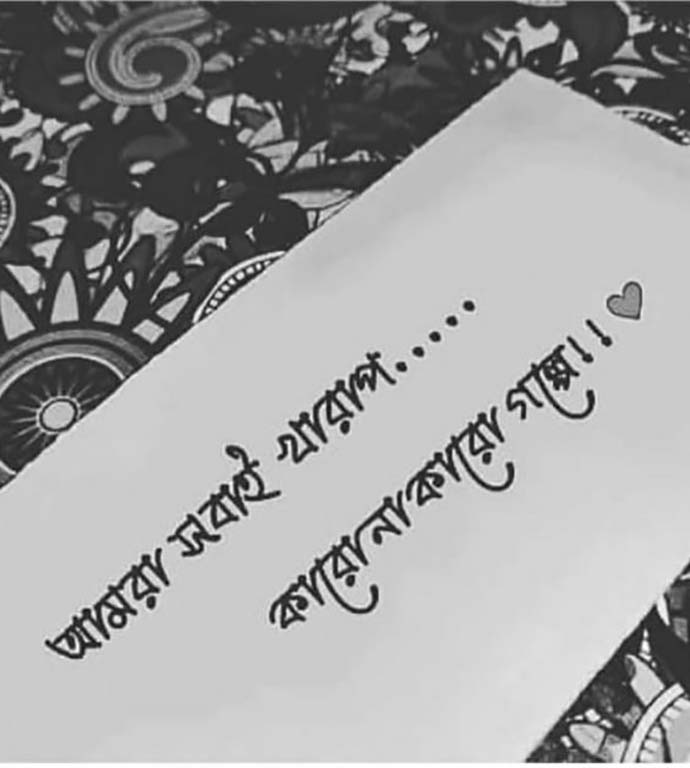 আমরা সবাই খারাপ.....
কারো না কারো গল্পে!!♥